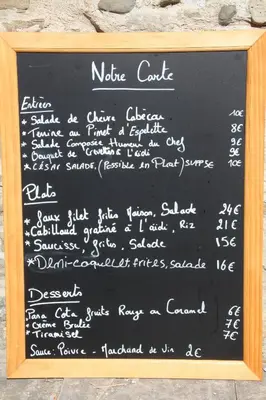 Notre Carte
Entrées
* Salade de Chèvre Cabécou 10€
* Terrine au Piment d'Espelette 8€
* Salade Composée Humeur du Chef 9€
* Bouquet de Crevettes à l'aïoli 9€
* CÉSAR SALADE, (Possible en Plat) SUPP 5€ 10€
Plats
* Faux filet frites Maison, Salade 24€
* Cabillaud gratiné à l'aïoli, Riz 21€
* Saucisse, frites, Salade 15€
* Demi-coquelet frites, salade 16€
Desserts
Pana Cota fruits Rouge ou Caramel 6€
* Crème Brulée 7€
* Tiramisu 7€
Sauce: Poivre - Marchand de Vin 2€